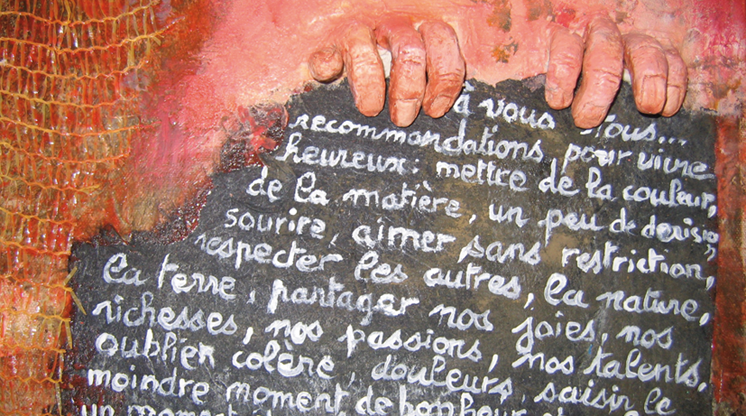 à vous tous...
recommandations pour vivre
heureux : mettre de la couleur,
de la matière, un peu de dérision,
sourire, aimer sans restriction,
respecter les autres, la nature,
la terre, partager nos joies, nos
richesses, nos passions, nos talents,
oublier colère, douleurs, saisir le
moindre moment de bonheur
un moment